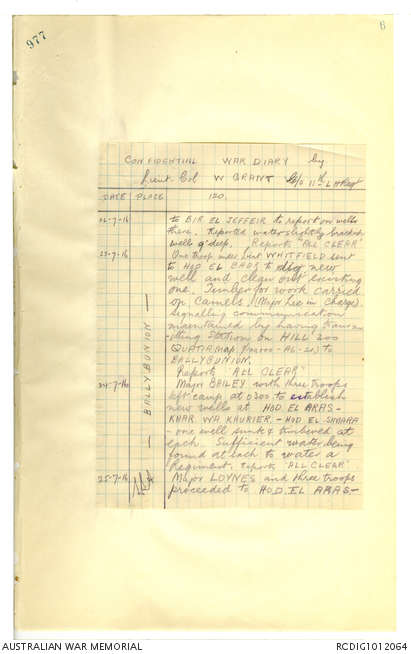 977
6
CONFIDENTIAL WAR DIARY by
Lieut Col W GRANT C/O 11th L H Regt
DATE PLACE
26-7-16 to BIR EL JEFFEIR to report on wells
there. Reported water slightly brackish
wells 9' deep. Reports "ALL CLEAR"
23-7-16 One troop under Lieut WHITFIELD sent
to HOD EL to dig new
well and clean out existing
one. Timber for work carried
on Camels. (Major Lee in Charge)
Signalling communication
maintained by having transm-
itting Station on HILL 200
QUATIA map to
BALLYBUNION.
Reports "ALL CLEAR"
— BALLYBUNION —
24-7-16 Major BAILEY with three troops
left camp at 0300 to establish
new wells at HOD EL ARAS –
KHAR WA KHURIER. – HOD EL SHNARA
– one well sunk & timbered at
each. Sufficient water being
found at each to water a
Regiment. reports "ALL CLEAR"
25-7-16 Major LOYNES and three troops
proceeded to HOD EL ARAS –
AUSTRALIAN WAR MEMORIAL
RCDIG1012064